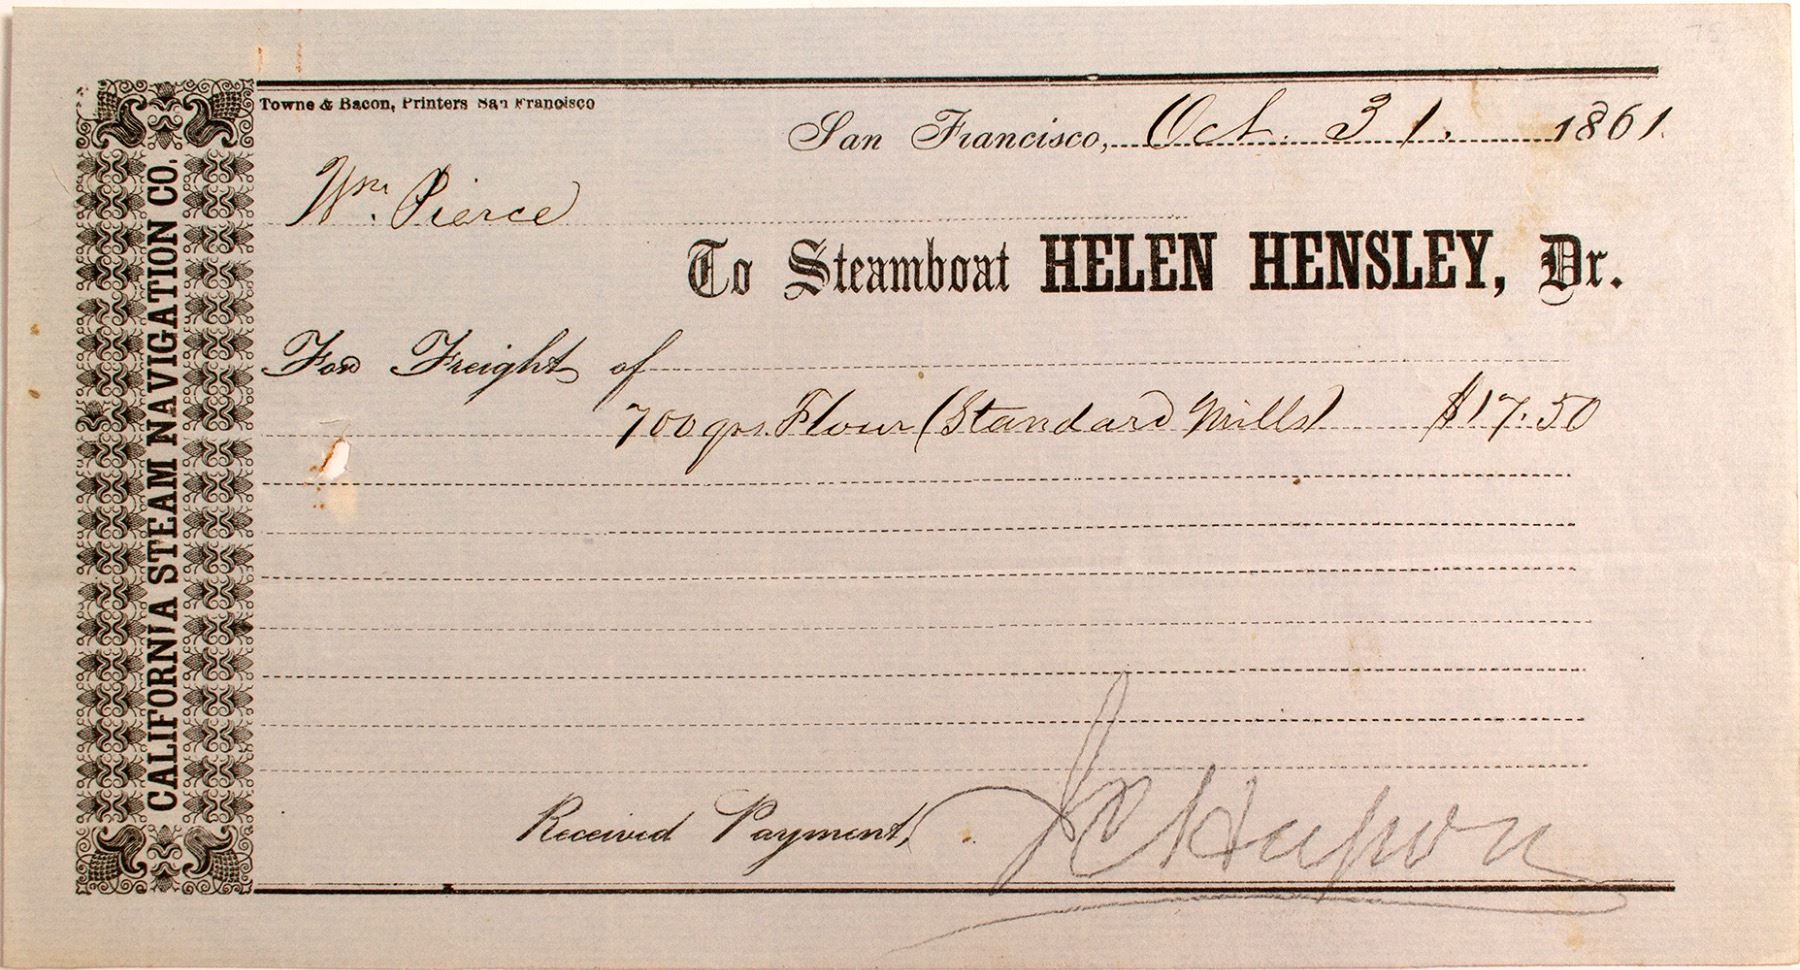 Towne & Bacon, Printers San Francisco
San Francisco, Oct. 31. 1861.
Wm. Pierce
To Steamboat HELEN HENSLEY, Dr.
For Freight of
700 qrs. Flour (Standard Mills) $17.50
Received Payment,
CALIFORNIA STEAM NAVIGATION CO.